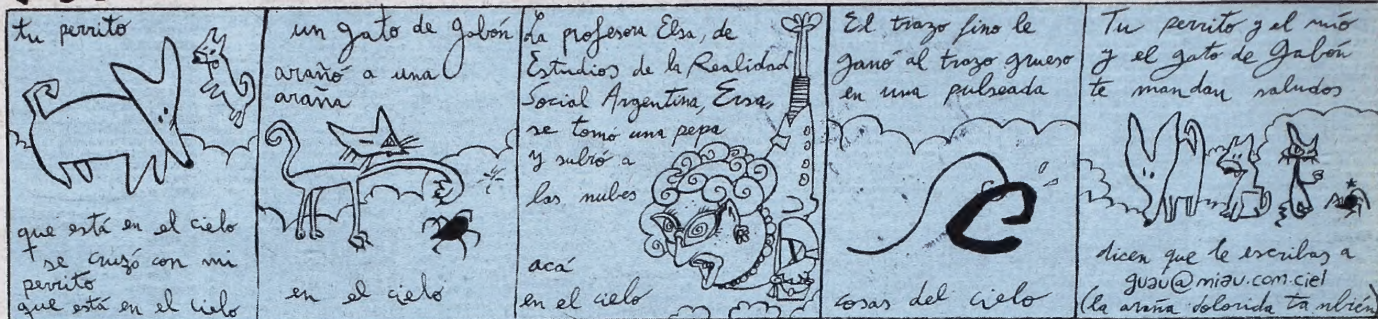 tu perrito
que está en el cielo
se cruzó con mi
perrito
que está en el cielo
un gato de Gabón
arañó a una
araña
en el cielo
La profesora Elsa, de
Estudios de la Realidad
Social Argentina, Ersa,
se tomó una pepa
y subió a
las nubes
acá
en el cielo
El trazo fino le
ganó al trazo grueso
en una pulseada
cosas del cielo
Tu perrito y el mío
y el gato de Gabón
te mandan saludos
dicen que le escribas a
guau@miau.com.ciel
(la araña dolorida también